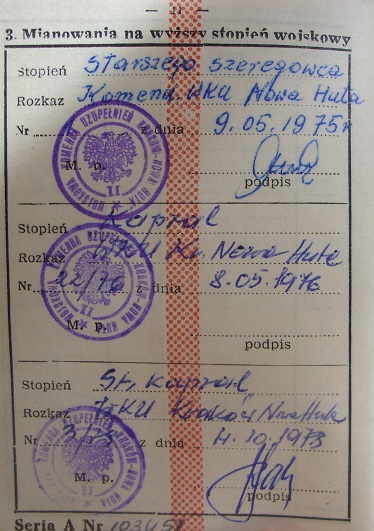 3. Mianowania na wyższy stopień wojskowy
Stopień Starszego szeregowca
Rozkaz Komend. WKU Nowa Huta
Nr z dnia 9.05.1975r
M. p.
podpis
Stopień Kapral
Rozkaz WKU Kr. Nowa Huta
Nr 22/76 z dnia 8.05.1976
M. p.
podpis
Stopień St. kapral
Rozkaz WKU Kraków Nowa Huta
Nr z dnia 4.10.1973
M. p.
podpis
Seria A Nr